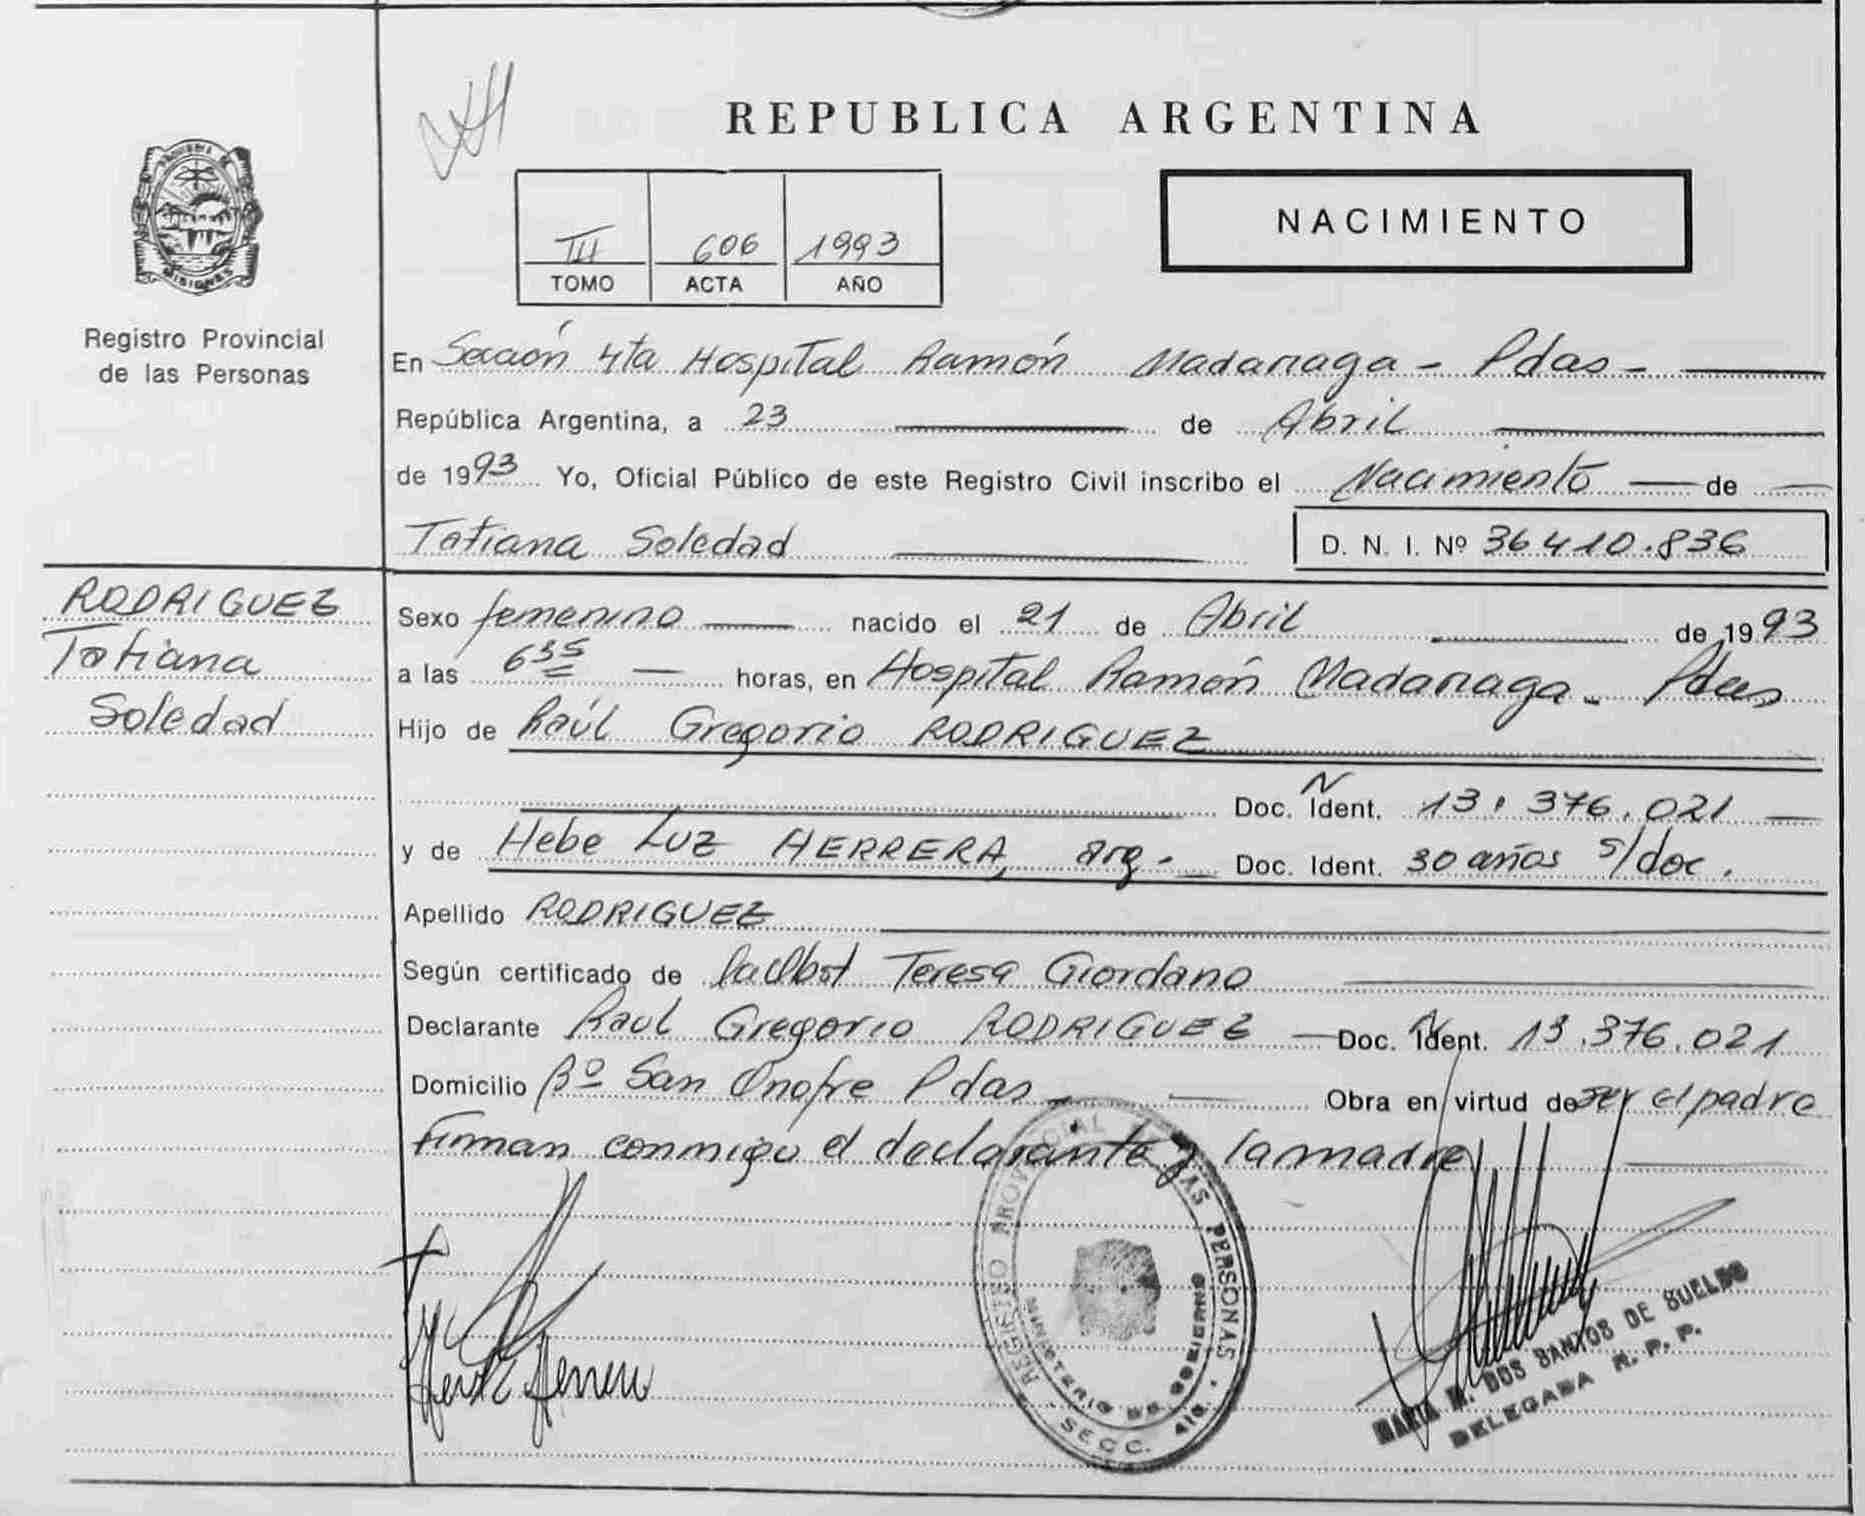 REPUBLICA ARGENTINA
III 606 1993
TOMO ACTA AÑO
NACIMIENTO
PROVINCIA DE
MISIONES
Registro Provincial
de las Personas
En Sección 4ta Hospital Ramón Madariaga - Pdas -
República Argentina, a 23 de Abril
de 1993 Yo, Oficial Público de este Registro Civil inscribo el Nacimiento de
Tatiana Soledad D. N. I. Nº 36.410.836
RODRIGUEZ
Tatiana
Soledad
Sexo femenino nacido el 21 de Abril de 1993
a las 6 35 horas, en Hospital Ramón Madariaga - Pdas
Hijo de Raúl Gregorio RODRIGUEZ
Doc. Ident. 13.376.021
y de Hebe Luz HERRERA, arg - Doc. Ident. 30 años s/doc.
Apellido RODRIGUEZ
Según certificado de Teresa Giordano
Declarante Raul Gregorio RODRIGUEZ Doc. Ident. 13.376.021
Domicilio Bº San Onofre Pdas Obra en virtud de ser el padre
Firman conmigo el declarante y la madre
REGISTRO PROVINCIAL PERSONAS
MINISTERIO DE GOBIERNO
SECC. 4ta.
MARIA DOS SANTOS DE SUELDO
DELEGADA R. P. P.